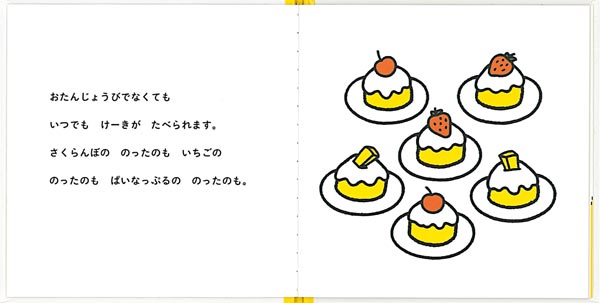 おたんじょうびでなくても
いつでも　けーきが　たべられます。
さくらんぼの　のったのも　いちごの
のったのも　ぱいなっぷるの　のったのも。